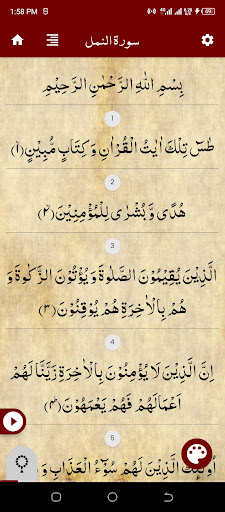 1:58 PM
61
سورة النمل
بِسْمِ اللّٰهِ الرَّحْمٰنِ الرَّحِيْمِ
1
طٰسٓ تِلْكَ اٰيٰتُ الْقُرْاٰنِ وَكِتَابٍ مُّبِيْنٍ ﴿۱﴾
2
هُدًى وَّبُشْرٰى لِلْمُؤْمِنِيْنَ ﴿۲﴾
3
الَّذِيْنَ يُقِيْمُوْنَ الصَّلٰوةَ وَيُؤْتُوْنَ الزَّكٰوةَ وَ
هُمْ بِالْاٰخِرَةِ هُمْ يُوْقِنُوْنَ ﴿۳﴾
4
اِنَّ الَّذِيْنَ لَا يُؤْمِنُوْنَ بِالْاٰخِرَةِ زَيَّنَّا لَهُمْ
اَعْمَالَهُمْ فَهُمْ يَعْمَهُوْنَ ﴿۴﴾
5
اُولٰٓئِكَ الَّذِيْنَ لَهُمْ سُوْٓءُ الْعَذَابِ وَ